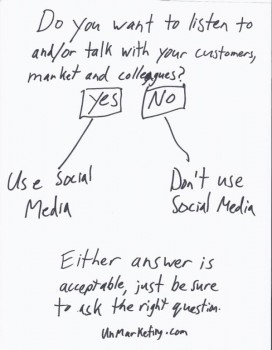 Do you want to listen to
and/or talk with your customers,
market and colleagues?
Yes
No
Use Social
Media
Don't use
Social Media
Either answer is
acceptable, just be sure
to ask the right question.
UnMarketing.com